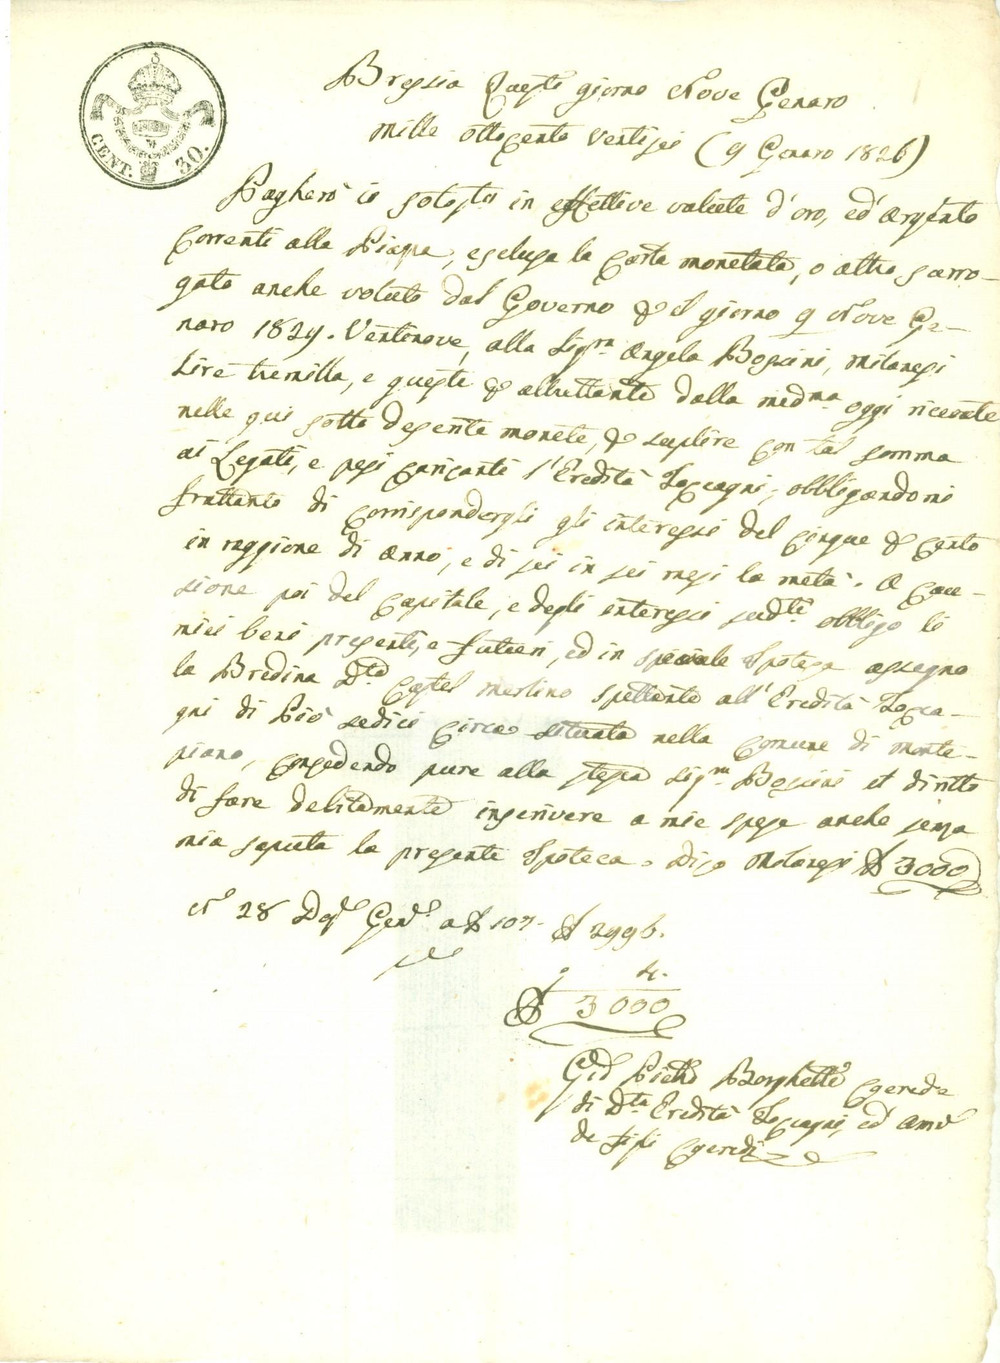 CENT. 30.
Brescia questo giorno Nove Genaro
mille ottocento ventisei (9 Genaro 1826)
Pagherò io sotostto in effettive valute d'oro, ed'argento
correnti alla Piazza, esclusa la carta monetata, o altro surro-
gato anche voluto dal Governo il giorno 9 Nove Ge-
naro 1829. Ventinove, alla Sigra Angela Bossini, milanesi
Lire tremilla, e queste altrettante dalla medma oggi ricevute
nelle qui sotto descritte monete, suplire con tal somma
ai Legati, e pesi caricanti l'Eredità Toccagni, obbligandomi
frattanto di corrispondergli gli interessi del cinque cento
in raggione di anno, e di sei in sei mesi la metà. A cau-
sione poi del capitale, e degli interessi sudti obbligo li
miei beni presenti, e futuri, ed in speciale Ipoteca assegno
la Bredina dta Castel merlino spettante all'Eredità Tocca-
gni di Piò sedici circa situata nella Comune di Monte-
piano, concedendo pure alla stessa Sigra Bossini il diritto
di fare debitamente inscrivere a mie spese anche senza
mia saputa la presente Ipoteca. Dico Milanesi £ 3000
N° 28 Gen. a £ 107- £ 2996.
4.
£ 3000
Pietro Borghetti Coerede
di dta Eredità Toccagni, ed Amre
de Sigi Coeredi